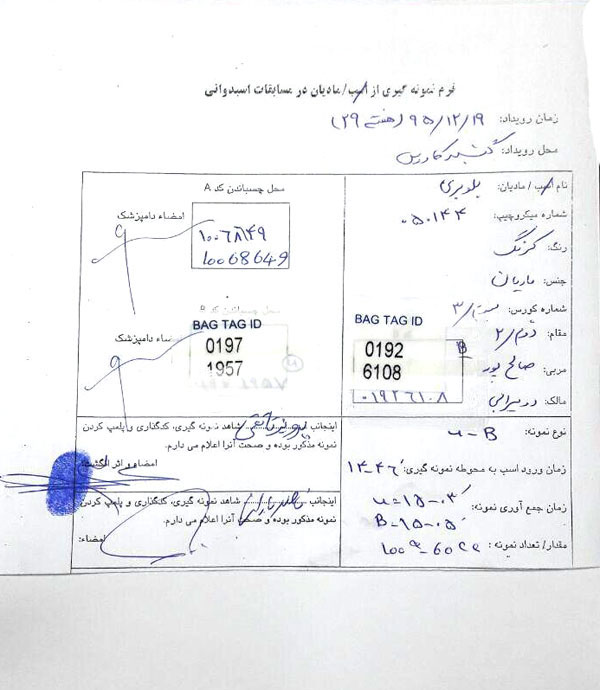 فرم نمونه گیری از اسب/ مادیان در مسابقات اسبدوانی
زمان رویداد: ۹۵/۱۲/۱۹ (هفته ۲۹)
محل رویداد: گنبد کاووس
نام اسب / مادیان: بلوبری
شماره میکروچیپ: ۰۵۰۱۴۴
رنگ: کرنگ
جنس: مادیان
شماره کورس: ۳
مقام: دوم/۲
مربی: صالح پور
مالک:
BAG TAG ID
0192
6108
B
۰۱۹۲۶۱۰۸
نوع نمونه: u-B
زمان ورود اسب به محوطه نمونه گیری: ۱۴-۴۶
زمان جمع آوری نمونه: u=۱۵-۰۳
B-۱۵-۰۵
مقدار/ تعداد نمونه: 60cc
محل چسباندن کد A
امضاء دامپزشک
۱۰۰۶۸۶۴۹
10068649
محل چسباندن کد B
BAG TAG ID
0197
1957
امضاء دامپزشک
اینجانب شاهد نمونه گیری، کدگذاری و پلمپ کردن
نمونه مذکور بوده و صحت آنرا اعلام می دارم.
امضاء و اثر انگشت:
اینجانب شاهد نمونه گیری، کدگذاری و پلمپ کردن
نمونه مذکور بوده و صحت آنرا اعلام می دارم.
امضاء: